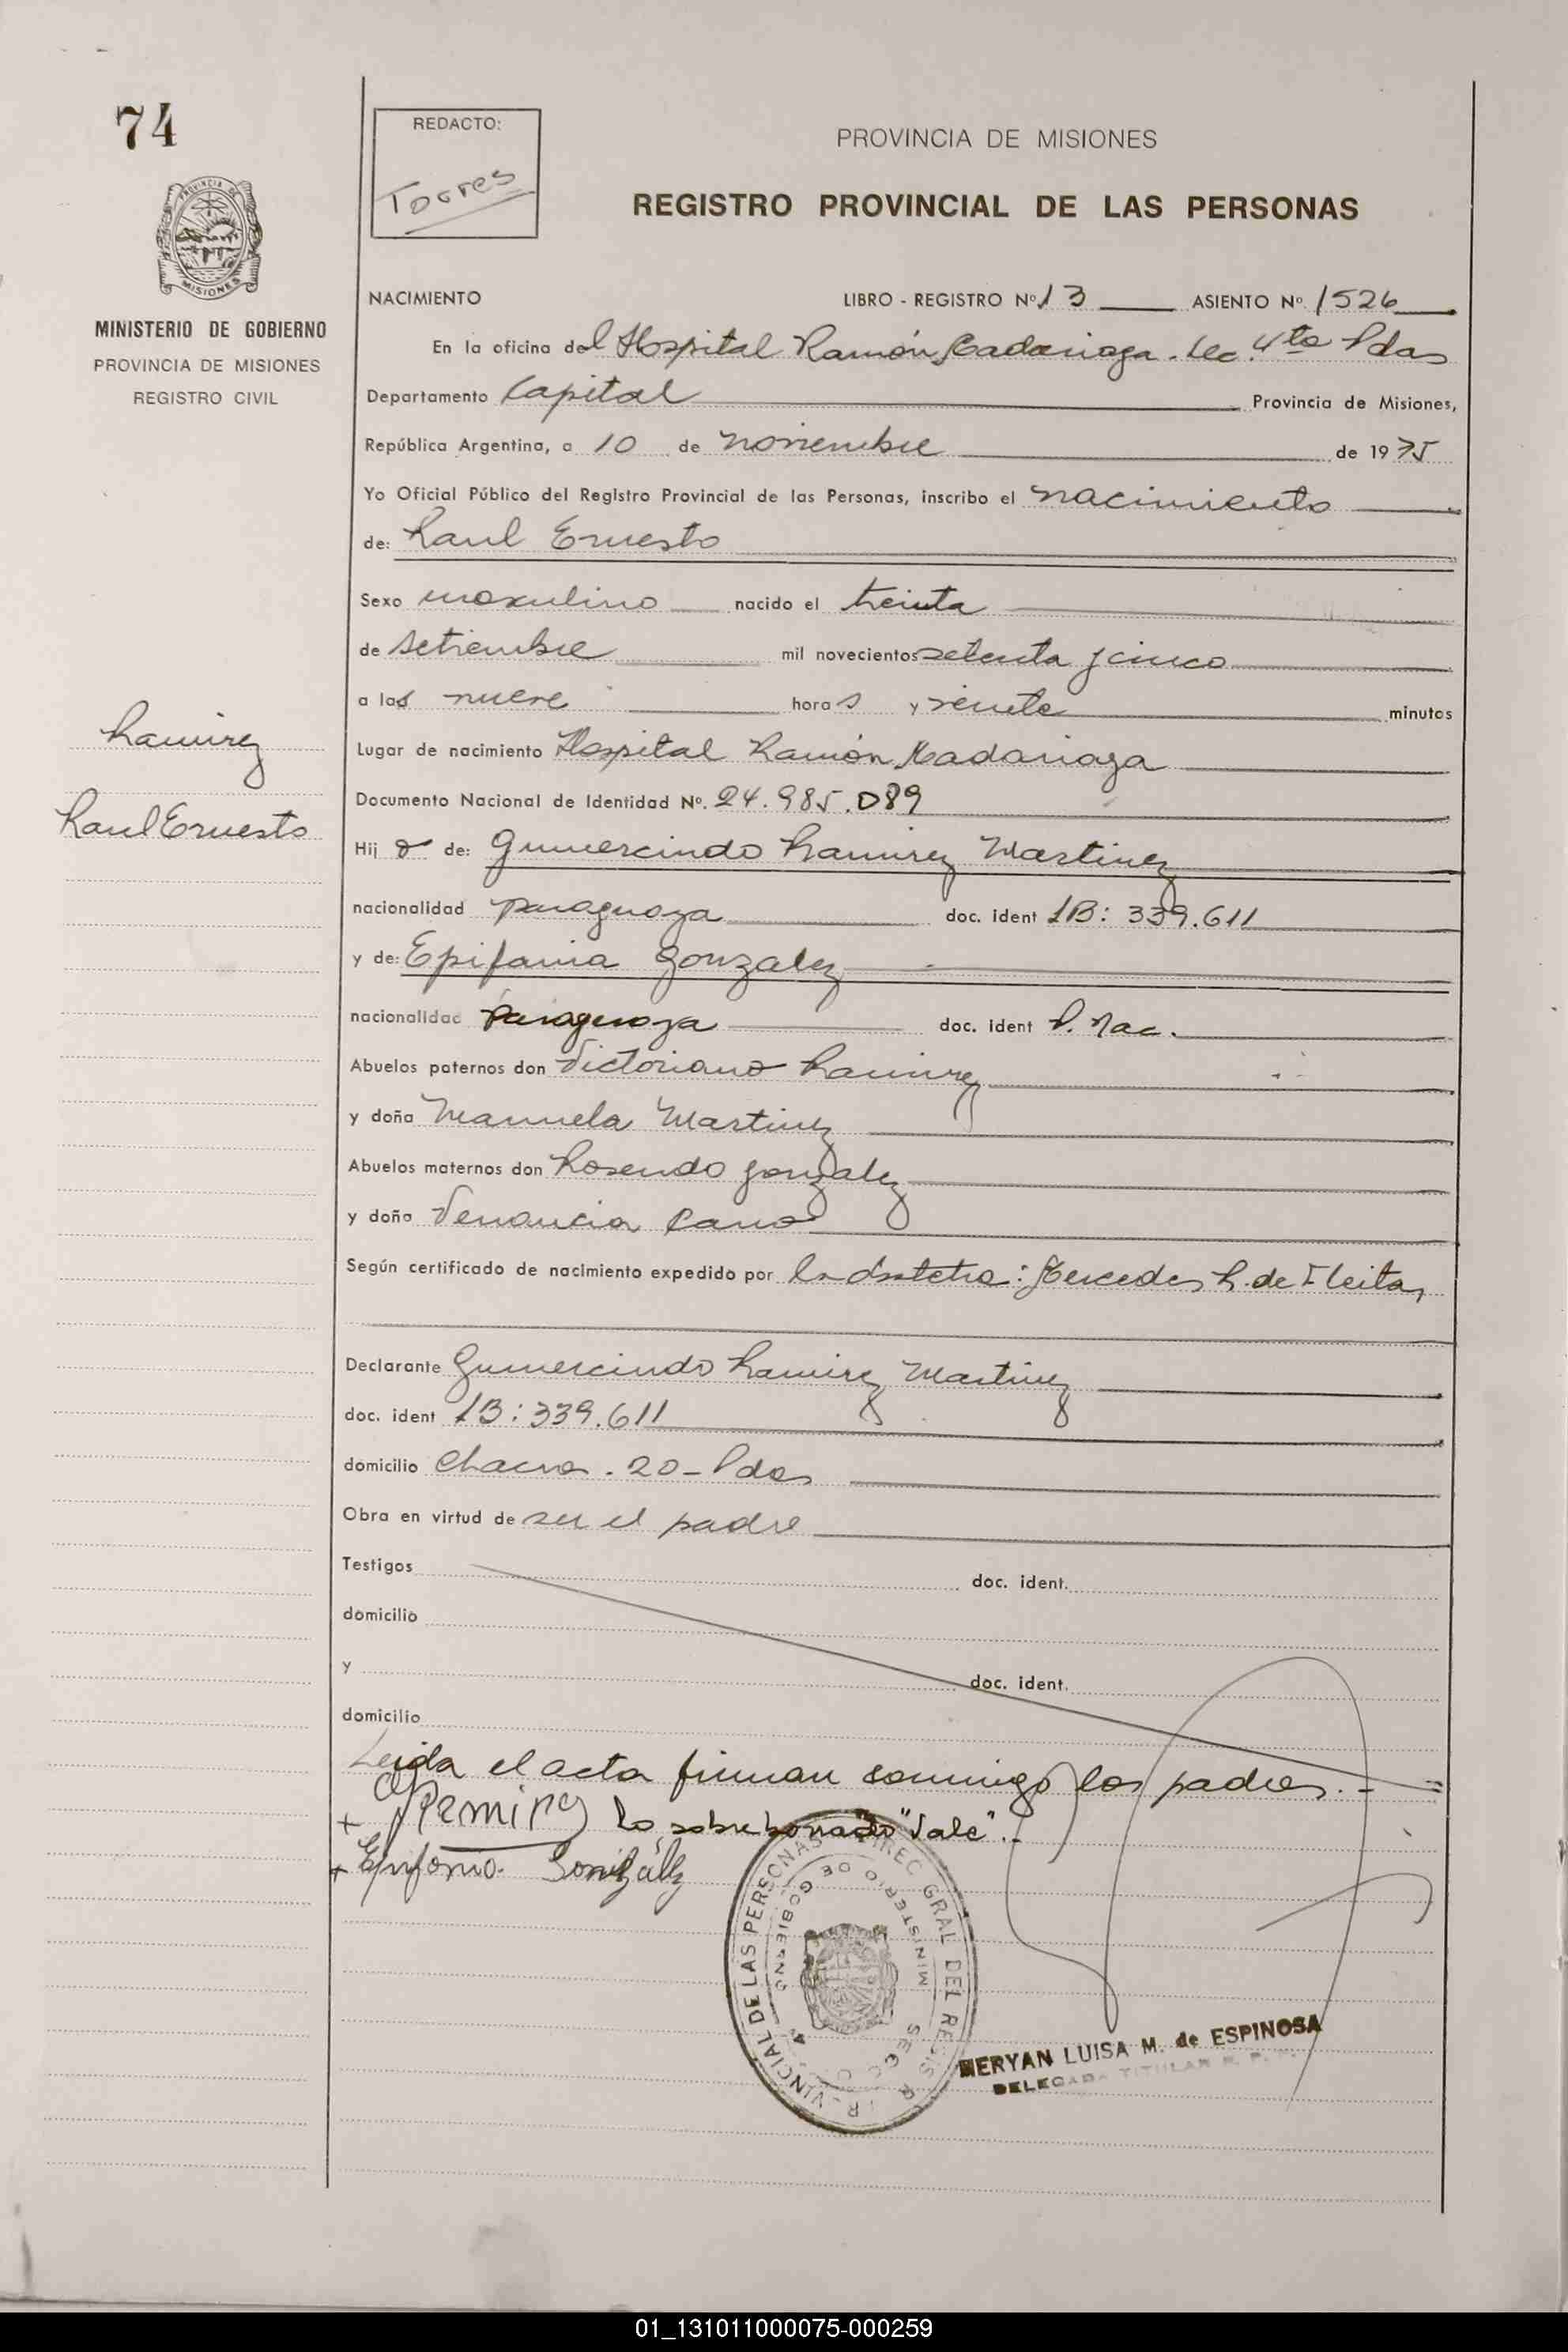 74
REDACTO:
Torres
PROVINCIA DE MISIONES
REGISTRO PROVINCIAL DE LAS PERSONAS
PROVINCIA DE
MISIONES
MINISTERIO DE GOBIERNO
PROVINCIA DE MISIONES
REGISTRO CIVIL
NACIMIENTO LIBRO - REGISTRO Nº 13 ASIENTO Nº 1526
En la oficina del Hospital Ramón Madariaga. Sec. 4ta Pdas
Departamento Capital Provincia de Misiones,
República Argentina, a 10 de noviembre de 1975
Yo Oficial Público del Registro Provincial de las Personas, inscribo el nacimiento
de: Raul Ernesto
Sexo masculino nacido el treinta
de setiembre mil novecientos setenta y cinco
a las nueve horas y veinte minutos
Ramirez
Raul Ernesto
Lugar de nacimiento Hospital Ramón Madariaga
Documento Nacional de Identidad Nº. 24.985.089
Hijo de: Gumercindo Ramirez Martinez
nacionalidad paraguaya doc. ident 1B: 339.611
y de: Epifania Gonzalez
nacionalidad paraguaya doc. ident P. Nac.
Abuelos paternos don Victoriano Ramirez
y doña Manuela Martinez
Abuelos maternos don Rosendo Gonzalez
y doña Venancia Cano
Según certificado de nacimiento expedido por la obstetra: Mercedes R. de Fleitas
Declarante Gumercindo Ramirez Martinez
doc. ident 1B: 339.611
domicilio Chacra. 20 - Pdas
Obra en virtud de ser el padre
Testigos doc. ident.
domicilio
y doc. ident.
domicilio
Leida el acta firman conmigo los padres.-
+ Ramirez Lo sobreborrado "Vale".-
+ Epifania Gonzalez
DIREC GRAL DEL REGIS PROVINCIAL DE LAS PERSONAS
MINISTERIO DE GOBIERNO
MERYAN LUISA M. de ESPINOSA
DELEGADA TITULAR R. P. P.
01_131011000075-000259